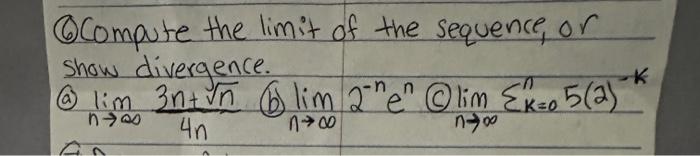 ⑥Compute the limit of the sequence, or
show divergence.
ⓐ lim n→∞ (3n+√n)/4n ⓑ lim n→∞ 2^-n e^n ⓒ lim n→∞ Σ^n_K=0 5(2)^-K